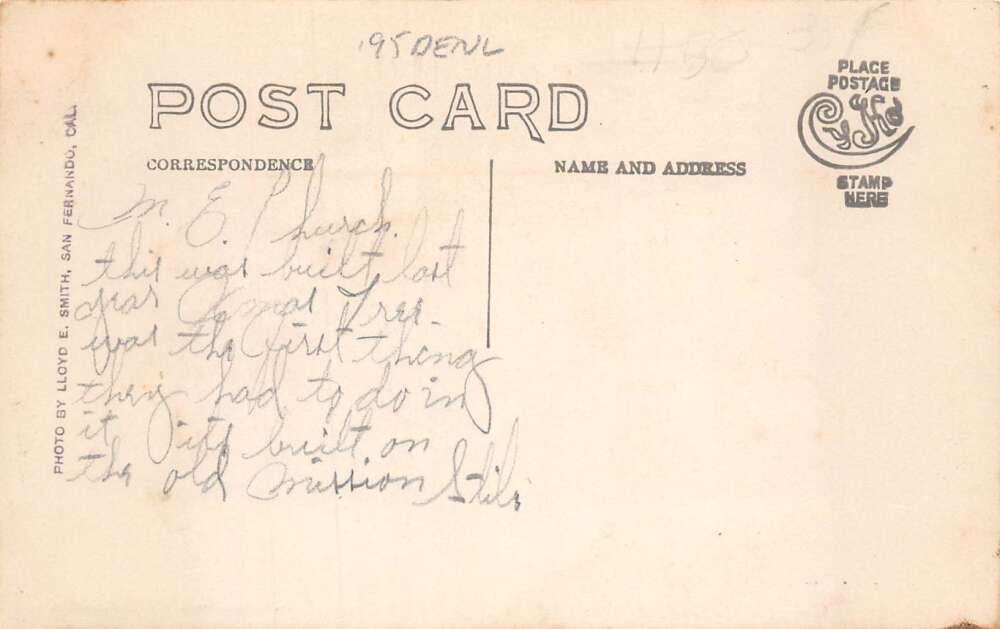 '95 DENL
POST CARD
CORRESPONDENCE
NAME AND ADDRESS
PLACE
POSTAGE
STAMP
HERE
PHOTO BY LLOYD E. SMITH, SAN FERNANDO, CAL.
M. E. Church.
this was built last
year Xmas Tree.
was the first thing
they had to do in
it its built on
the old mission Stile